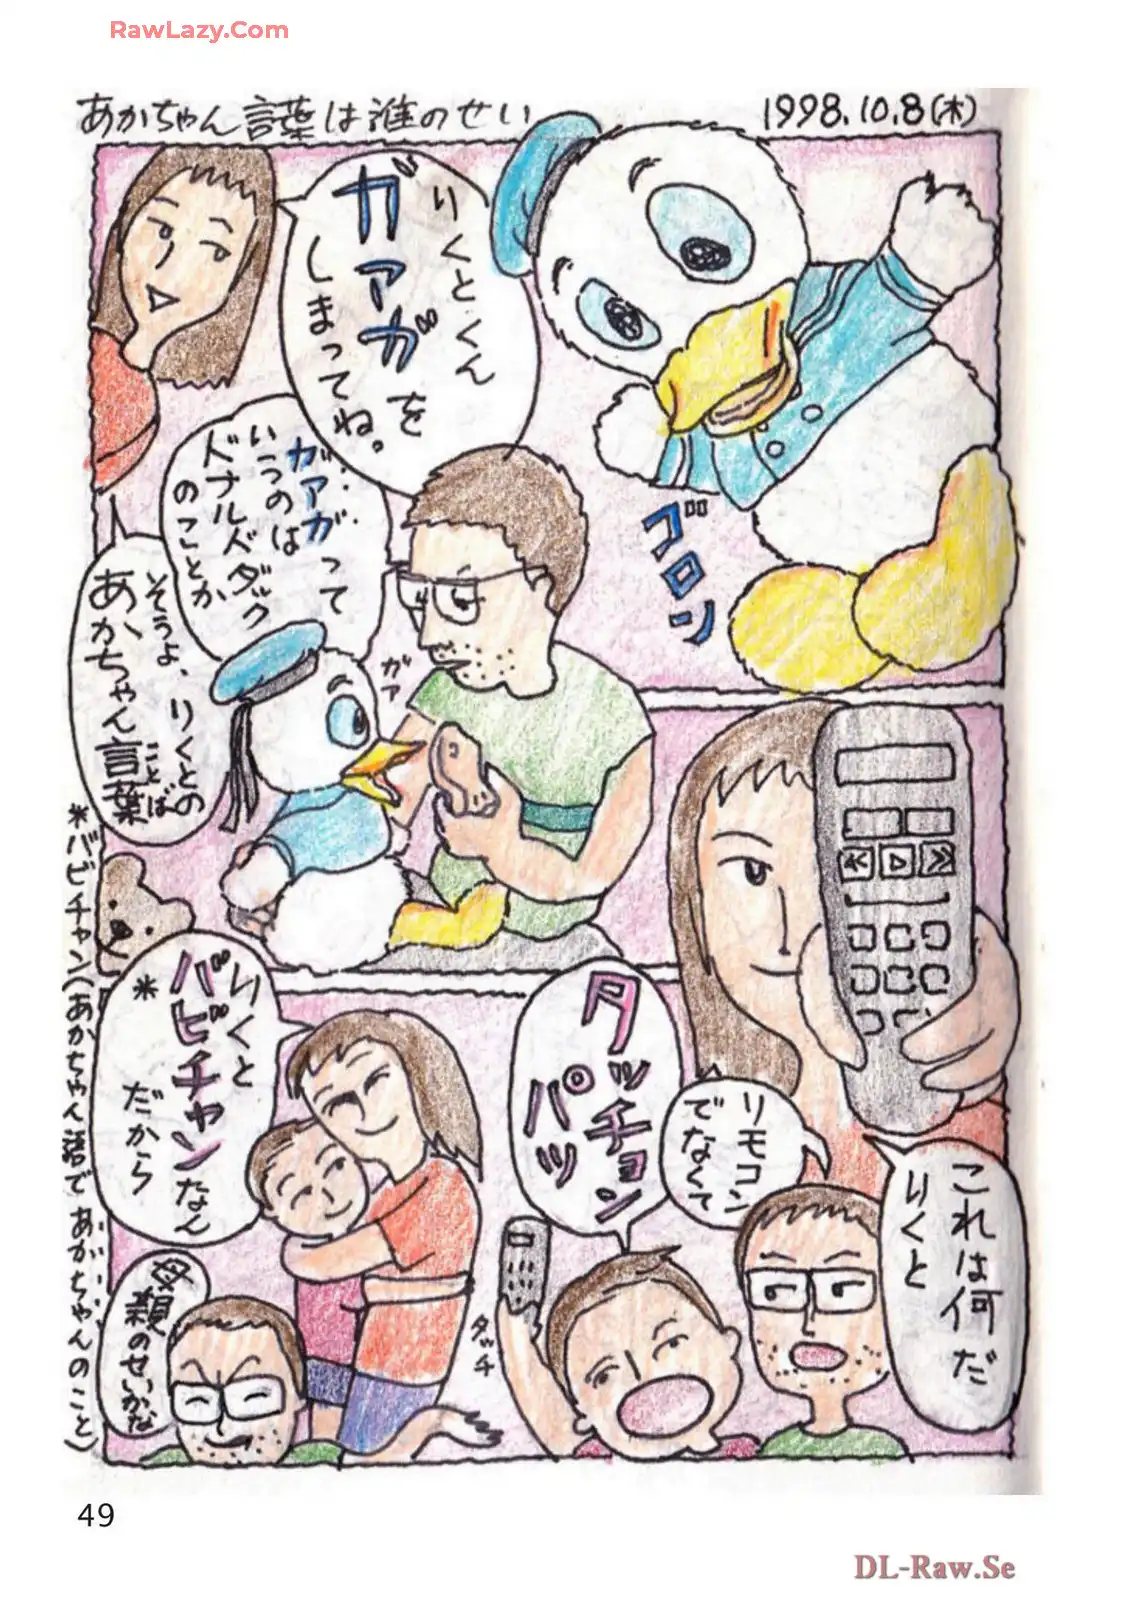 RawLazy.Com
あかちゃん言葉は誰のせい
1998.10.8(木)
いくとくん
ガァガを
しまってね。
ゴロン
ガァガって
いうのは
ドナルドダック
のことか
そうよ、りくとの
あかちゃん言葉
ことば
ガァ
これは何だ
りくと
リモコン
でなくて
タッチョン
パッ
タッチ
りくと
バビチャンなん
だから
*
母親のせいかな
*バビチャン(あかちゃん語であかちゃんのこと)
49
DL-Raw.Se